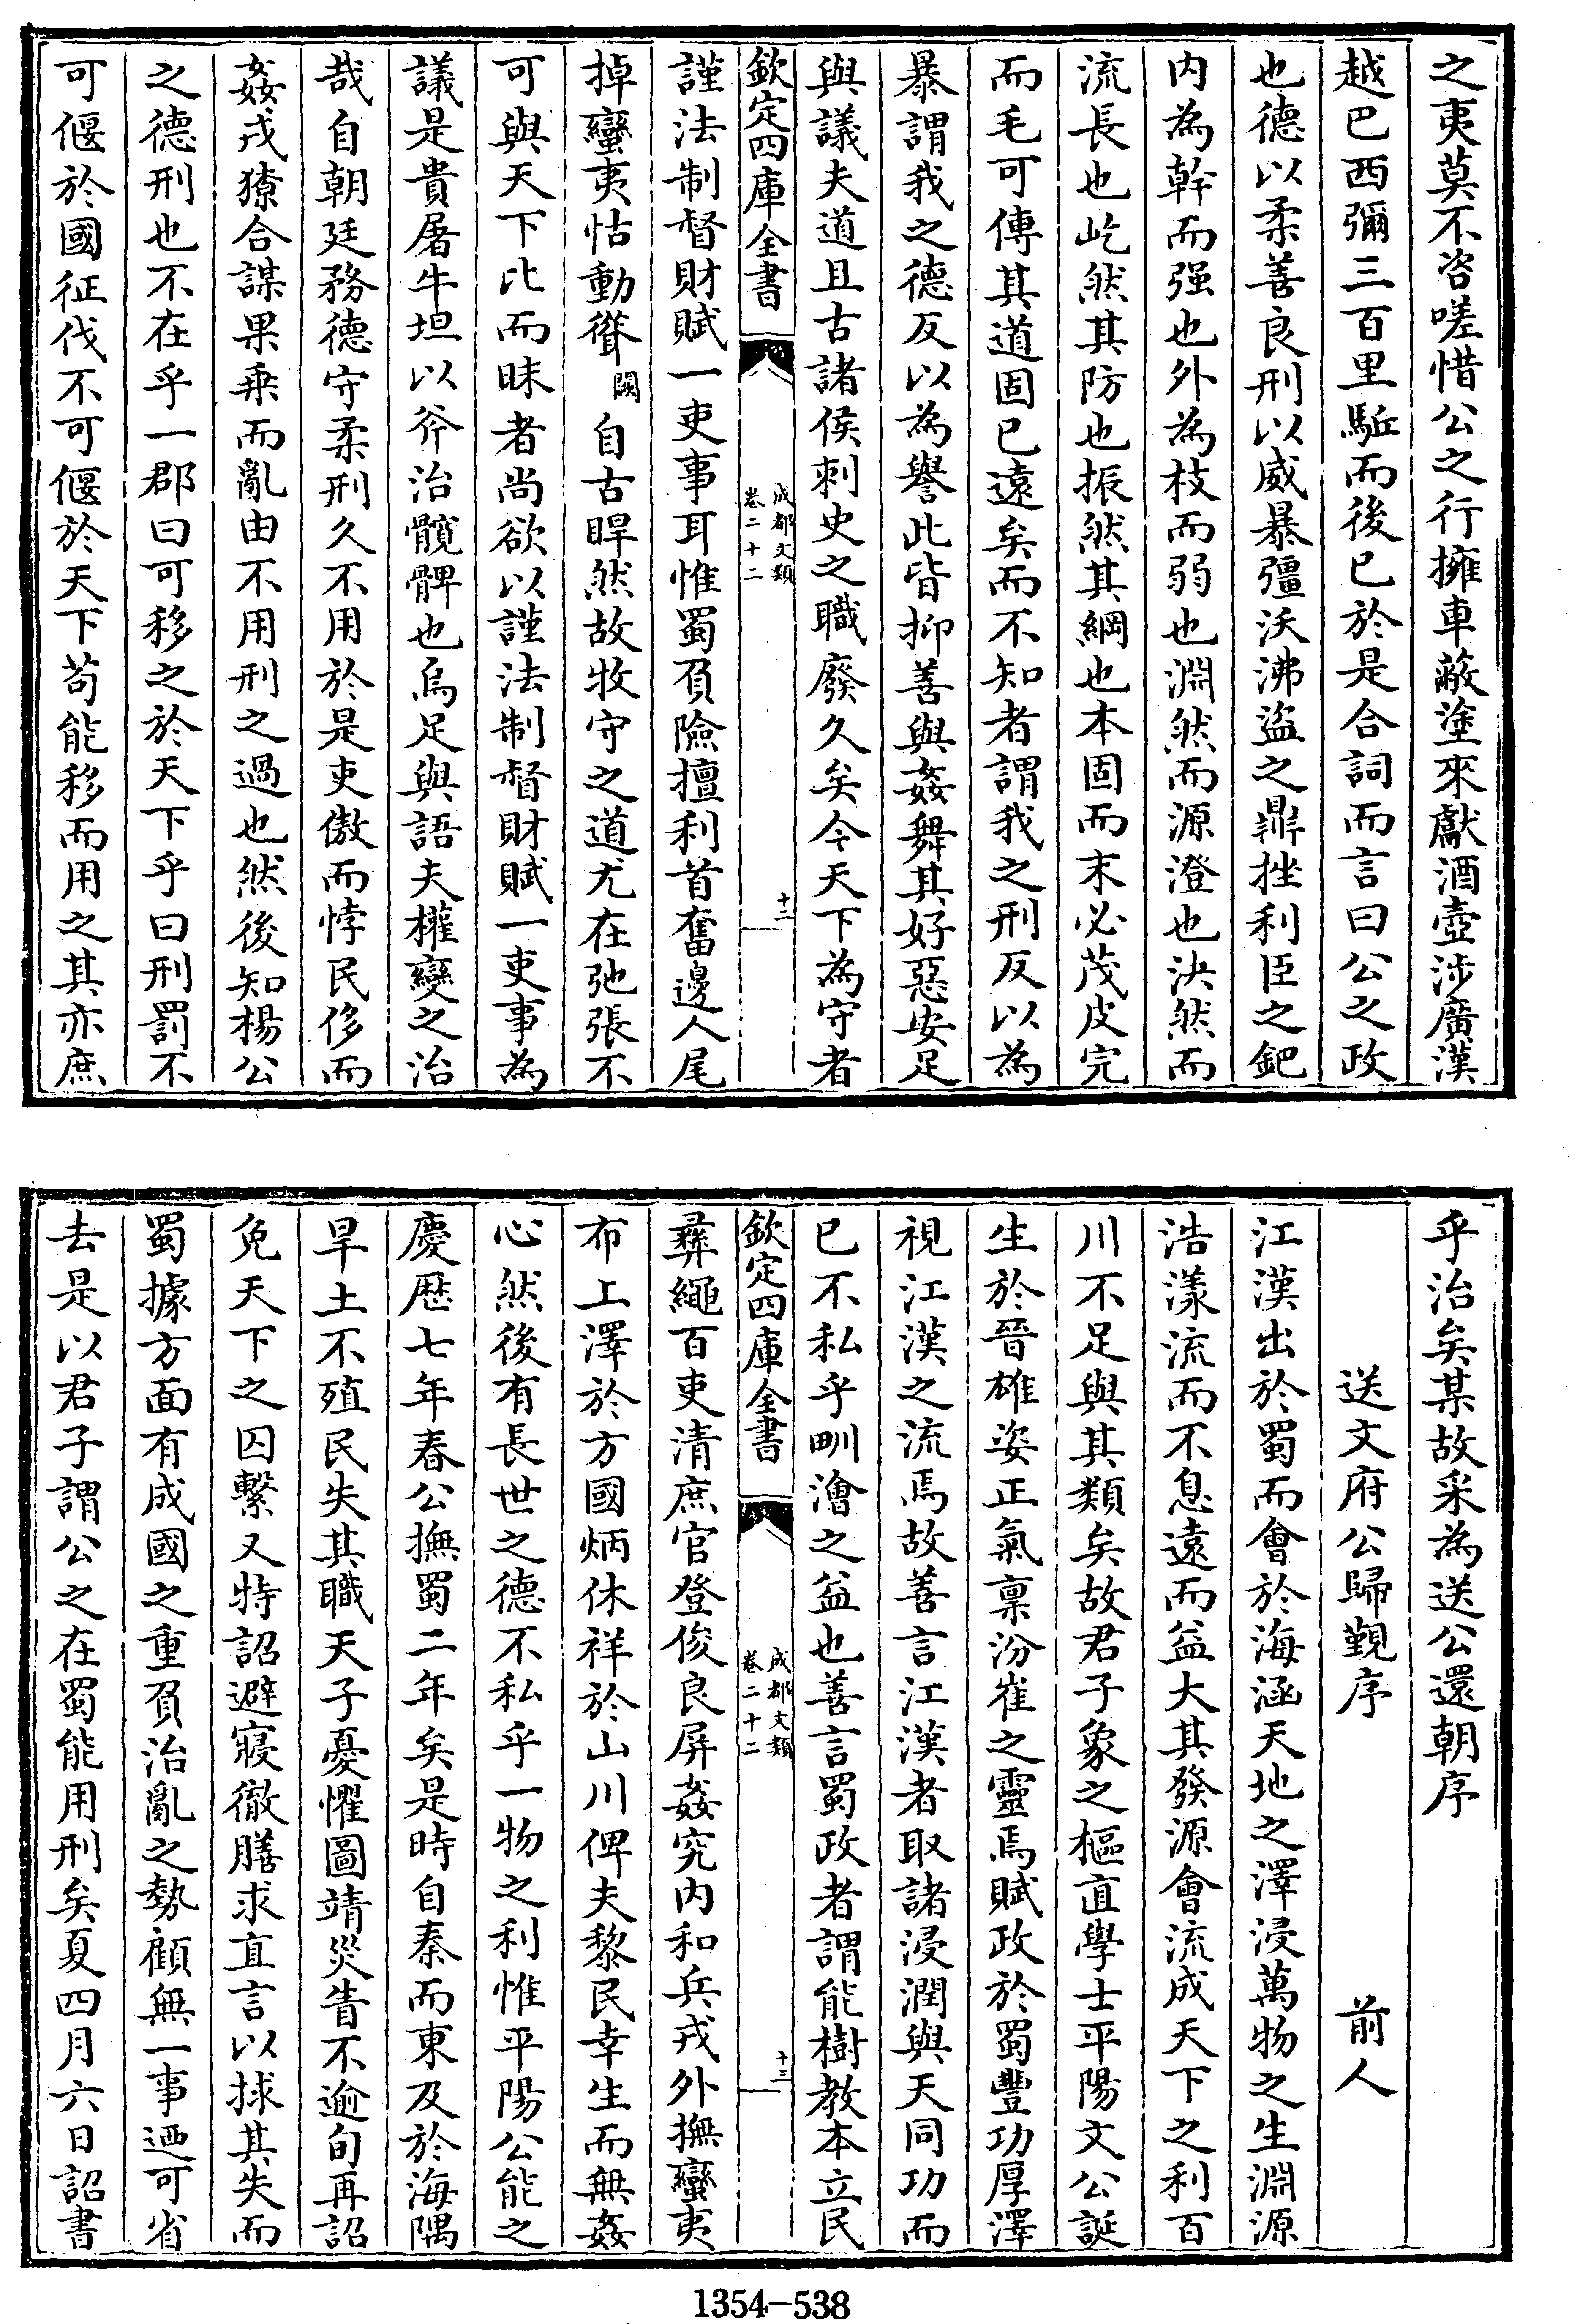 之夷莫不咨嗟惜公之行擁車蔽塗來獻酒壺涉廣漢
越巴西彌三百里駈而後已於是合詞而言曰公之政
也德以柔善良刑以威暴彊沃沸盜之鼎挫利臣之鈀
内為幹而强也外為枝而弱也淵然而源澄也決然而
流長也屹然其防也振然其綱也本固而末必茂皮完
而毛可傳其道固已遠矣而不知者謂我之刑反以為
暴謂我之德反以為譽此皆抑善與姦舞其好惡安足
與議夫道且古諸侯刺史之職廢久矣今天下為守者
欽定四庫全書
成都文類
卷二十二
十二
謹法制督財賦一吏事耳惟蜀負險擅利首奮邊人尾
掉蠻夷怙動聳闕自古睅然故牧守之道尤在弛張不
可與天下比而昧者尚欲以謹法制督財賦一吏事為
議是貴屠牛坦以斧治髖髀也烏足與語夫權變之治
哉自朝廷務德守柔刑久不用於是吏傲而悖民侈而
姦戎獠合謀果乗而亂由不用刑之過也然後知楊公
之德刑也不在乎一郡曰可移之於天下乎曰刑罰不
可偃於國征伐不可偃於天下苟能移而用之其亦庶
乎治矣某故采為送公還朝序
送文府公歸覲序 前人
江漢出於蜀而會於海涵天地之澤浸萬物之生淵源
浩漾流而不息遠而益大其發源會流成天下之利百
川不足與其類矣故君子象之樞直學士平陽文公誕
生於晉雄姿正氣稟汾崔之靈焉賦政於蜀豐功厚澤
視江漢之流焉故善言江漢者取諸浸潤與天同功而
已不私乎甽澮之益也善言蜀政者謂能樹教本立民
欽定四庫全書
成都文類
卷二十二
十三
彛繩百吏清庶官登俊良屏姦宄内和兵戎外撫蠻夷
布上澤於方國炳休祥於山川俾夫黎民幸生而無姦
心然後有長世之德不私乎一物之利惟平陽公能之
慶厯七年春公撫蜀二年矣是時自秦而東及於海隅
旱土不殖民失其職天子憂懼圖靖災眚不逾旬再詔
免天下之囚繫又特詔避寢徹膳求直言以捄其失而
蜀據方面有成國之重負治亂之勢顧無一事迺可省
去是以君子謂公之在蜀能用刑矣夏四月六日詔書
1354-538